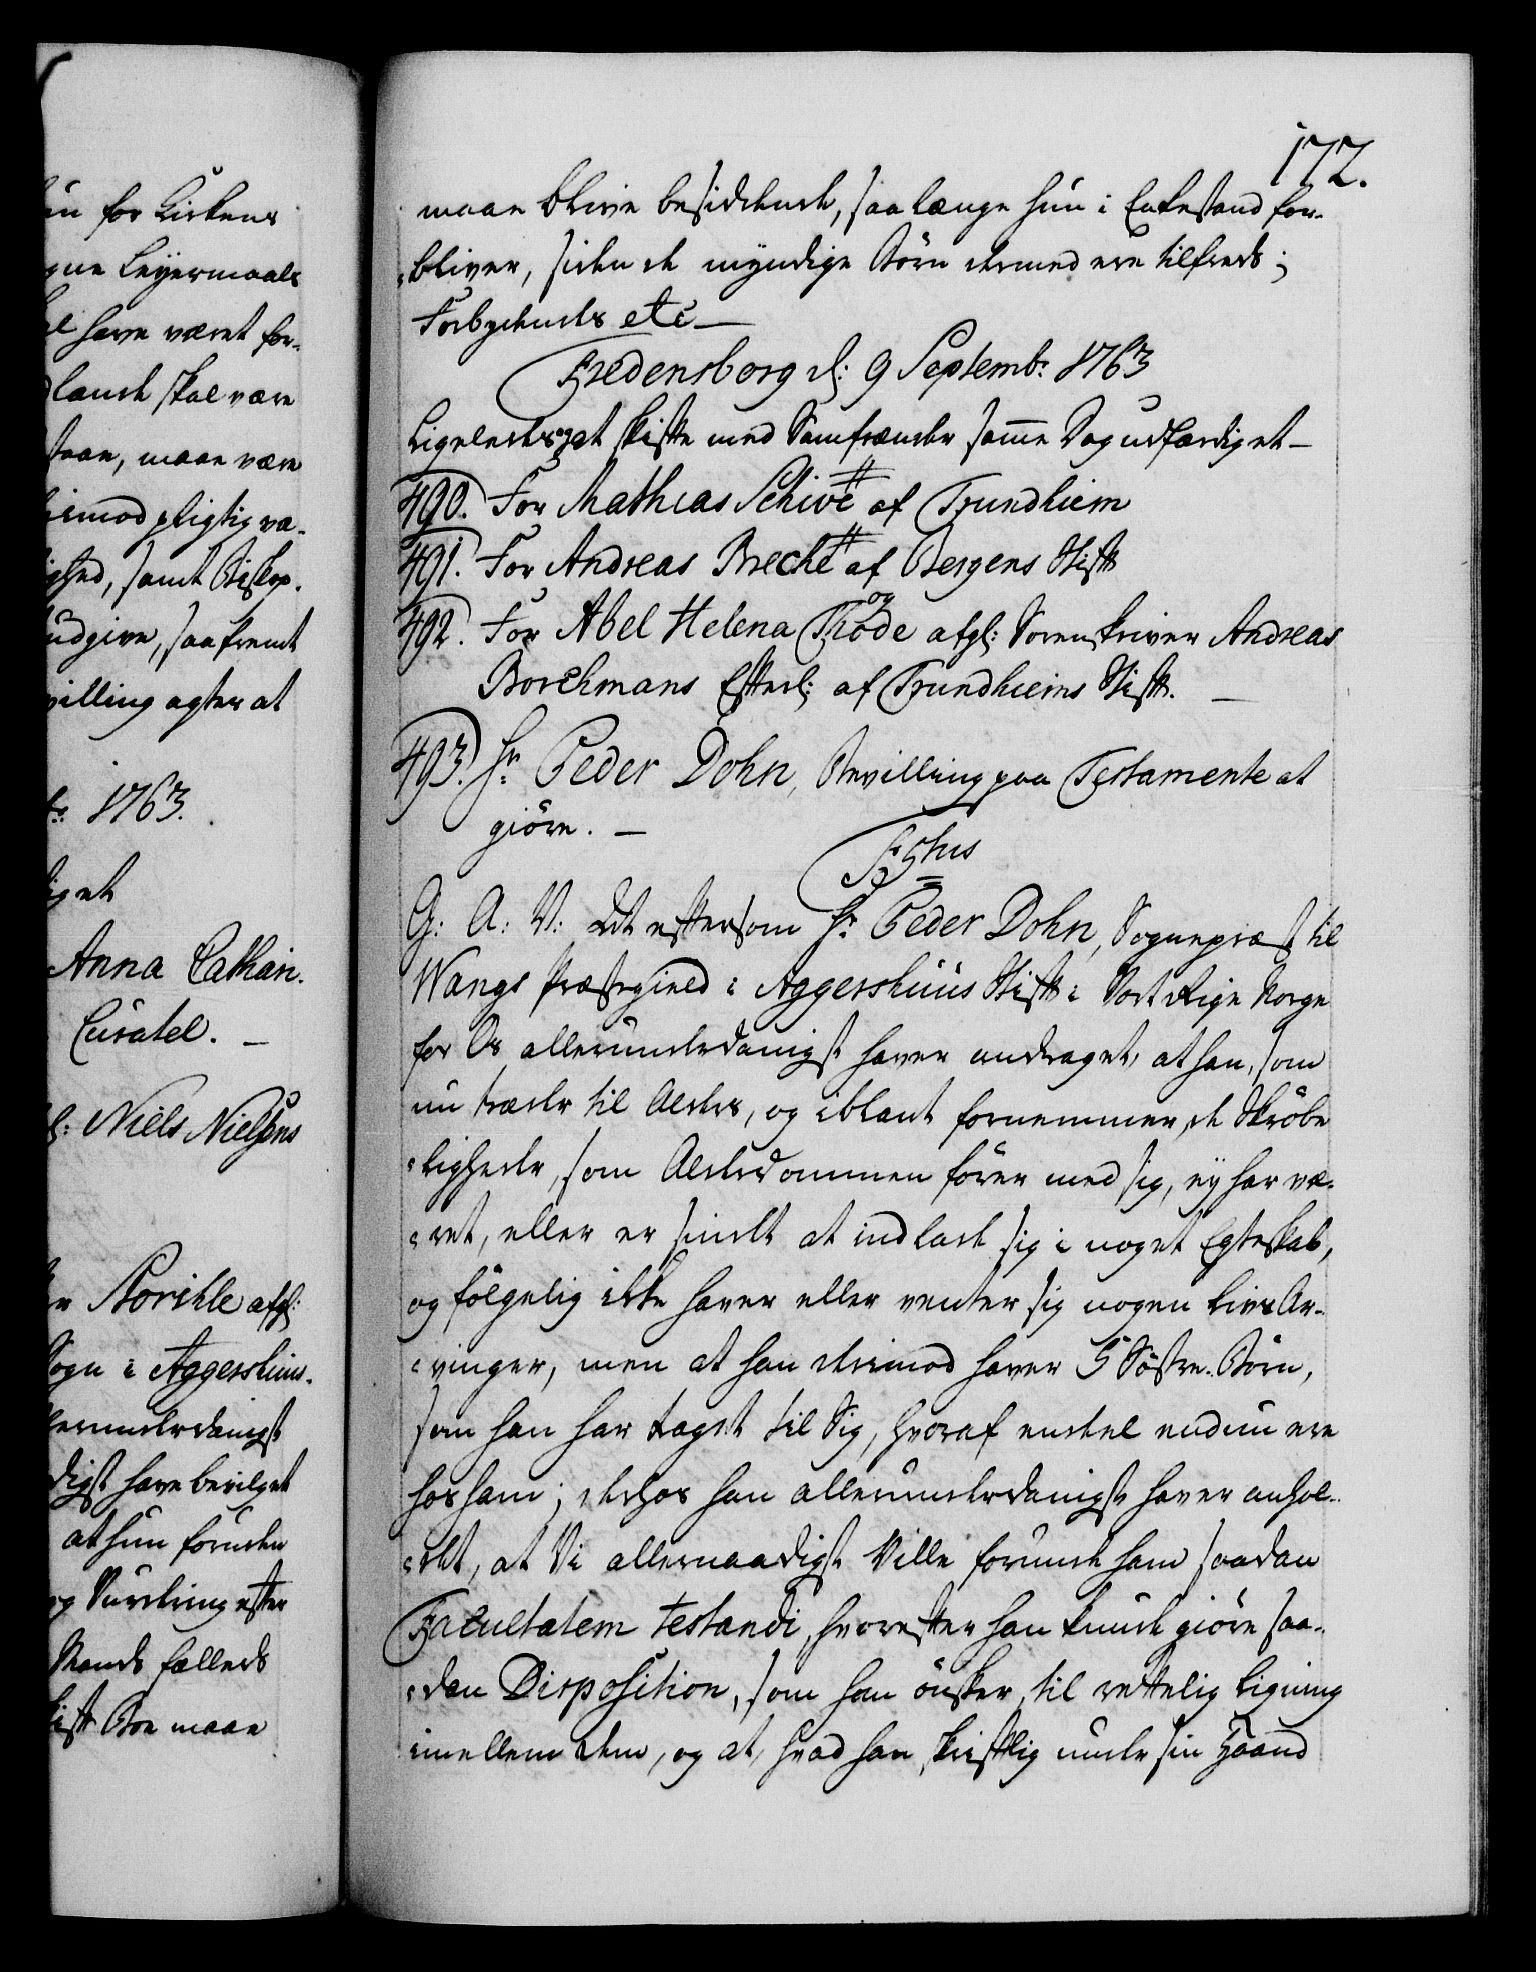 172.
maae blive besiddende, saa længe hun i Enkestand for-
bliver, siden de myndige Börn dermed ere tilfreds;
Forbydends etc —
Fredensborg d: 9 Septemb: 1763
Ligeledes at skifte med Samfrænder samme Dag udfærdiget —
490. For Mathias Schive af Trundhiem
491. For Andreas Breche af Bergens Stift
492. For Abel Helena Thode og afgl: Sorenskriver Andreas
Borchmans Efterl: af Trundhiems Stift. —
493. Hr Peder Dohn, Bevilling paa Testamente at
giöre. —
G: A: V: At eftersom Hr Peder Dohn, Sognepræst til
Wangs Præstegield i Aggershuus Stift i Vort Rige Norge
for Os allerunderdanigst haver andraget, at han, som
nu træder til Alders, og iblant fornemmer, de Skröbe
ligheder, som Alderdommen förer med sig, ey har væ-
ret, eller er sindet at indlade sig i noget Egteskab,
og fölgelig ikke haver eller venter sig nogen Livs Ar-
vinger, men at han derimod haver 5 Söstre-Börn,
som han har taget til Sig, hvoraf endeel endnu ere
hos ham; derhos han allerunderdanigst haver anhol-
det, at Vi allernaadigst Ville forunde ham saadan
Facultatem testandi, hvorefter han kunde giöre saa-
dan Disposition, som han önsker, til rettelig Ligning
imellem dem, og at, hvad han skriftlig under sin Haand
for Kirkens
Leyermaals
have været for-
lande skal være
staae, maae være
imod pligtig væ-
ighed, samt Biskop-
udgive, saafremt
villing agter at
1763.
Anna Cathari-
Curatel. —
Niels Nielsens
Norikle afgl:
Sogn i Aggershuus-
lerunderdanigst
digst have bevilget
at hun foruden
og Vurdering efter
Mands fælleds
Boe maae